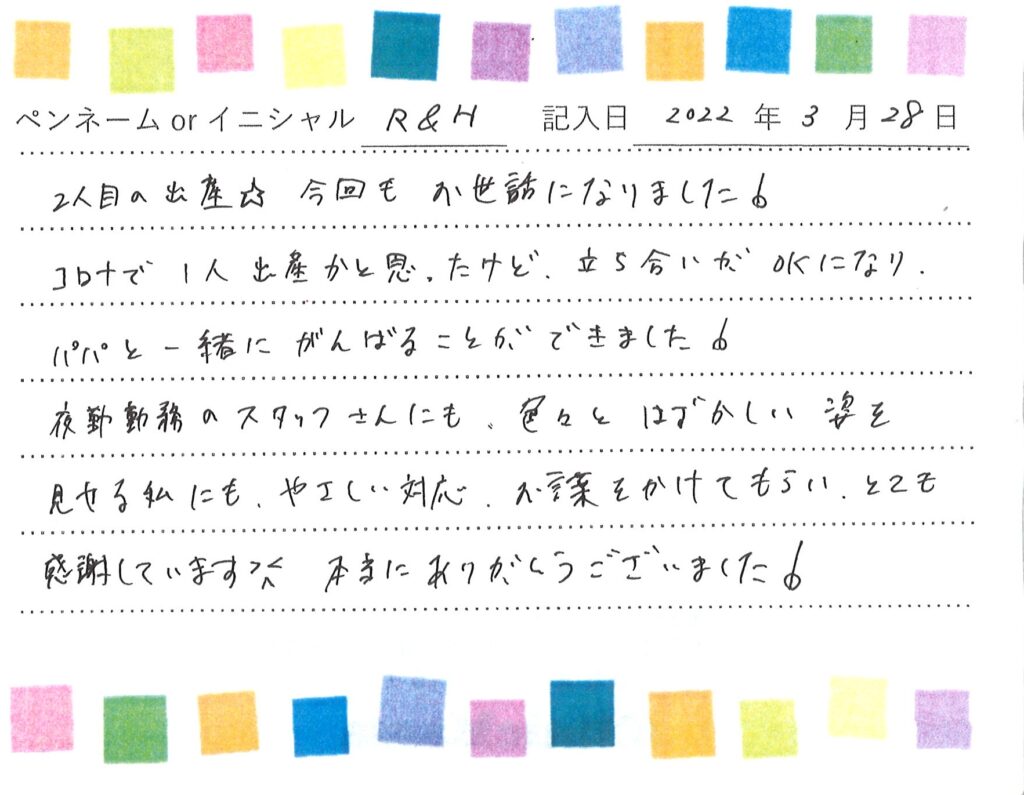 ペンネーム or イニシャル R&H 記入日 2022 年 3 月 28 日
2人目の出産☆ 今回も お世話になりました♭
コロナで 1人 出産かと思ったけど、立ち合いが OKになり、
パパと一緒に がんばることができました♭
夜勤勤務の スタッフさんにも、色々と はずかしい 姿を
見せる私にも、やさしい対応、お言葉をかけてもらい、とても
感謝しています^^ 本当に ありがとうございました♭